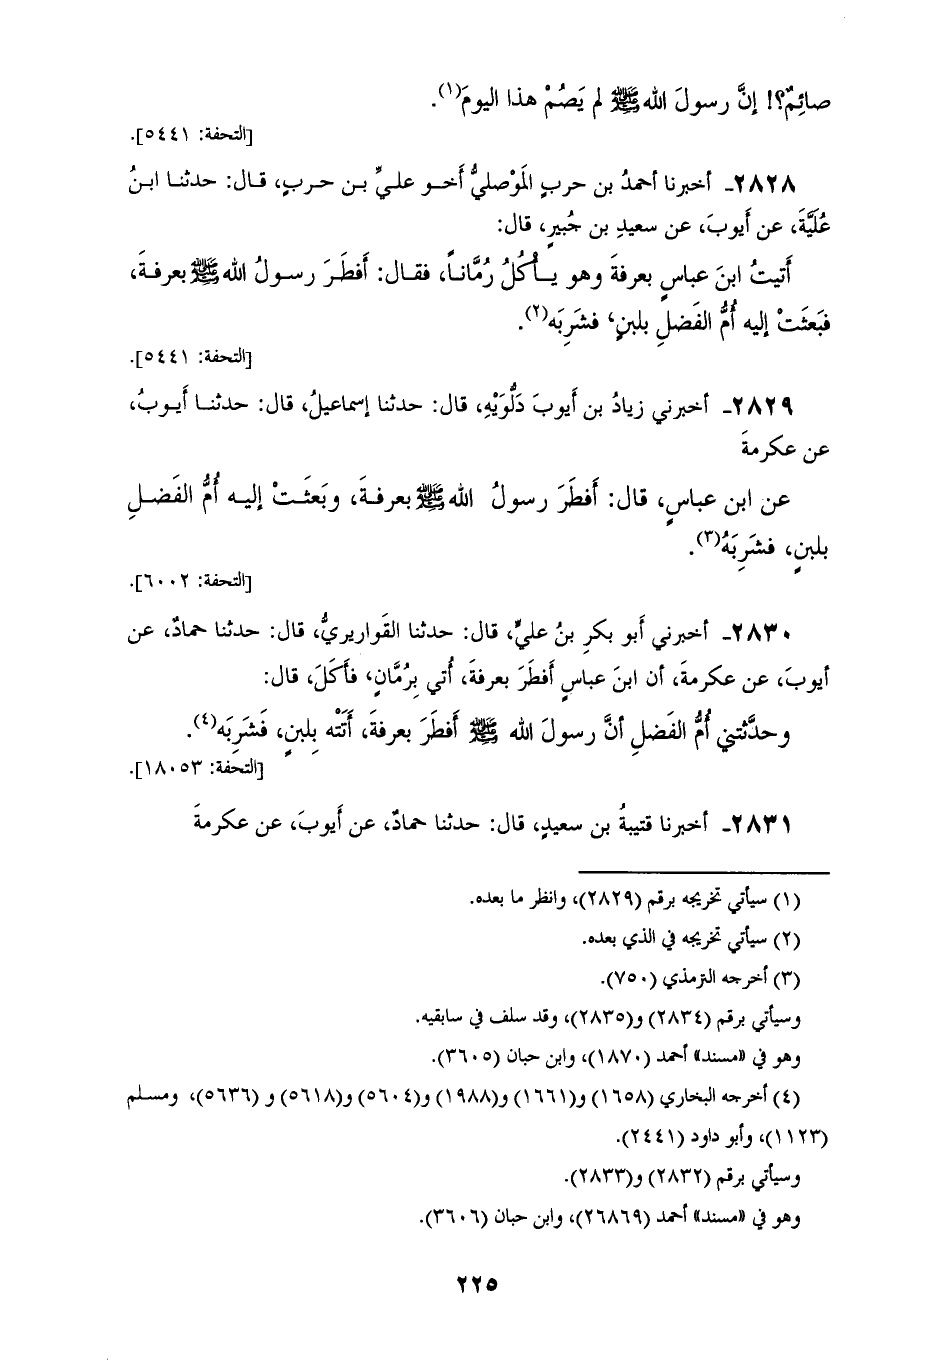 صائِمٌ؟! إنَّ رسولَ الله ﷺ لم يَصُمْ هذا اليومَ(١).
[التحفة: ٥٤٤١].
٢٨٢٨ـ أخبرنا أحمدُ بن حربٍ المَوْصليُّ أخو عليِّ بن حربٍ، قال: حدثنا ابنُ
عُلَيَّةَ، عن أيوبَ، عن سعيدِ بن جُبيرٍ، قال:
أتيتُ ابنَ عباسٍ بعرفةَ وهو يأكُلُ رُمَّاناً، فقال: أفطَرَ رسولُ الله ﷺ بعرفةَ،
فبَعثَتْ إليه أُمُّ الفَضلِ بلبنٍ، فشرِبَه(٢).
[التحفة: ٥٤٤١].
٢٨٢٩ـ أخبرني زيادُ بن أيوبَ دَلُّوَيْهِ، قال: حدثنا إسماعيلُ، قال: حدثنا أيوبُ،
عن عكرمةَ
عن ابن عباسٍ، قال: أفطَرَ رسولُ الله ﷺ بعرفةَ، وبَعثَتْ إليه أُمُّ الفَضلِ
بلبنٍ، فشَرِبَهُ(٣).
[التحفة: ٦٠٠٢].
٢٨٣٠ـ أخبرني أبو بكرِ بنُ عليٍّ، قال: حدثنا القَواريريُّ، قال: حدثنا حمادٌ، عن
أيوبَ، عن عكرمةَ، أن ابنَ عباسٍ أفطَرَ بعرفةَ، أُتي بِرُمَّانٍ، فأكَلَ، قال:
وحدَّثتني أُمُّ الفَضلِ أنَّ رسولَ الله ﷺ أفطَرَ بعرفةَ، أتَتْه بِلبنٍ، فَشرِبَه(٤).
[التحفة: ١٨٠٥٣].
٢٨٣١ـ أخبرنا قتيبةُ بن سعيدٍ، قال: حدثنا حمادٌ، عن أيوبَ، عن عكرمةَ
(١) سيأتي تخريجه برقم (٢٨٢٩)، وانظر ما بعده.
(٢) سيأتي تخريجه في الذي بعده.
(٣) أخرجه الترمذي (٧٥٠).
وسيأتي برقم (٢٨٣٤) و(٢٨٣٥)، وقد سلف في سابقيه.
وهو في «مسند» أحمد (١٨٧٠)، وابن حبان (٣٦٠٥).
(٤) أخرجه البخاري (١٦٥٨) و(١٦٦١) و(١٩٨٨) و(٥٦٠٤) و(٥٦١٨) و (٥٦٣٦)، ومسلم
(١١٢٣)، وأبو داود (٢٤٤١).
وسيأتي برقم (٢٨٣٢) و(٢٨٣٣).
وهو في «مسند» أحمد (٢٦٨٦٩)، وابن حبان (٣٦٠٦).
٢٢٥